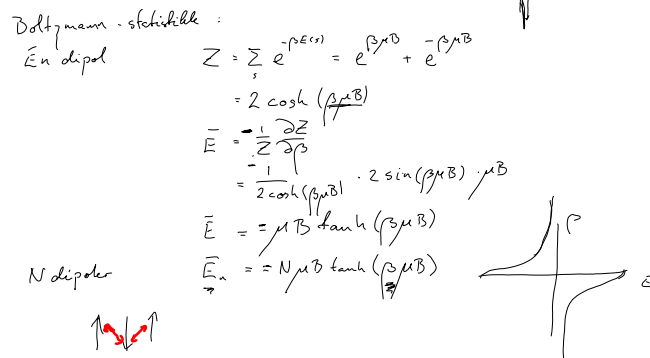 Boltzmann-statistikk :
Én dipol Z = Σ_s e^{-βE(s)} = e^{βμB} + e^{-βμB}
= 2 cosh (βμB)
Ē = - 1/Z ∂Z/∂β
= - 1/(2cosh(βμB)) · 2 sin(βμB) · μB
Ē = -μB tanh (βμB)
N dipoler Ē_n = -NμB tanh (βμB)
β
Ē